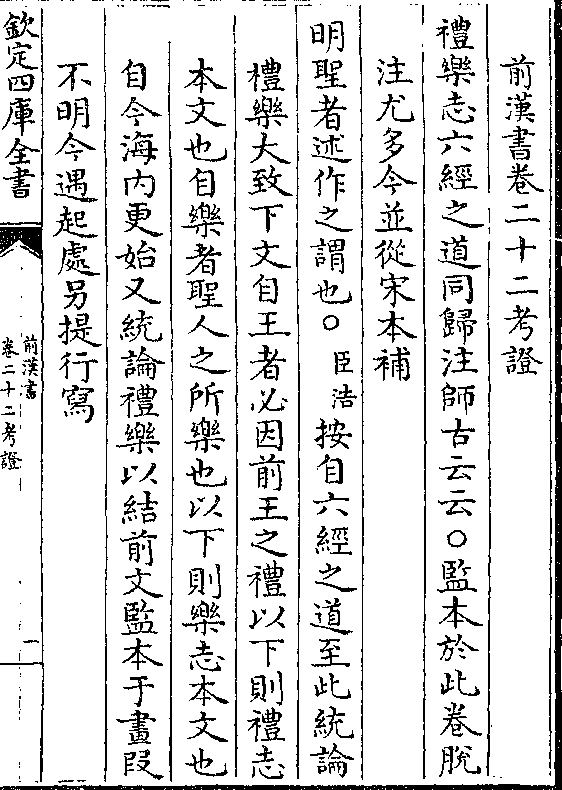 前漢書卷二十二考證
禮樂志六經之道同歸注師古云云○監本於此卷脫
注尤多今並從宋本補
明聖者述作之謂也○臣浩按自六經之道至此統論
禮樂大致下文自王者必因前王之禮以下則禮志
本文也自樂者聖人之所樂也以下則樂志本文也
自今海内更始又統論禮樂以結前文監本于畫段
不明今遇起處另提行寫
欽定四庫全書
前漢書
卷二十二考證
一